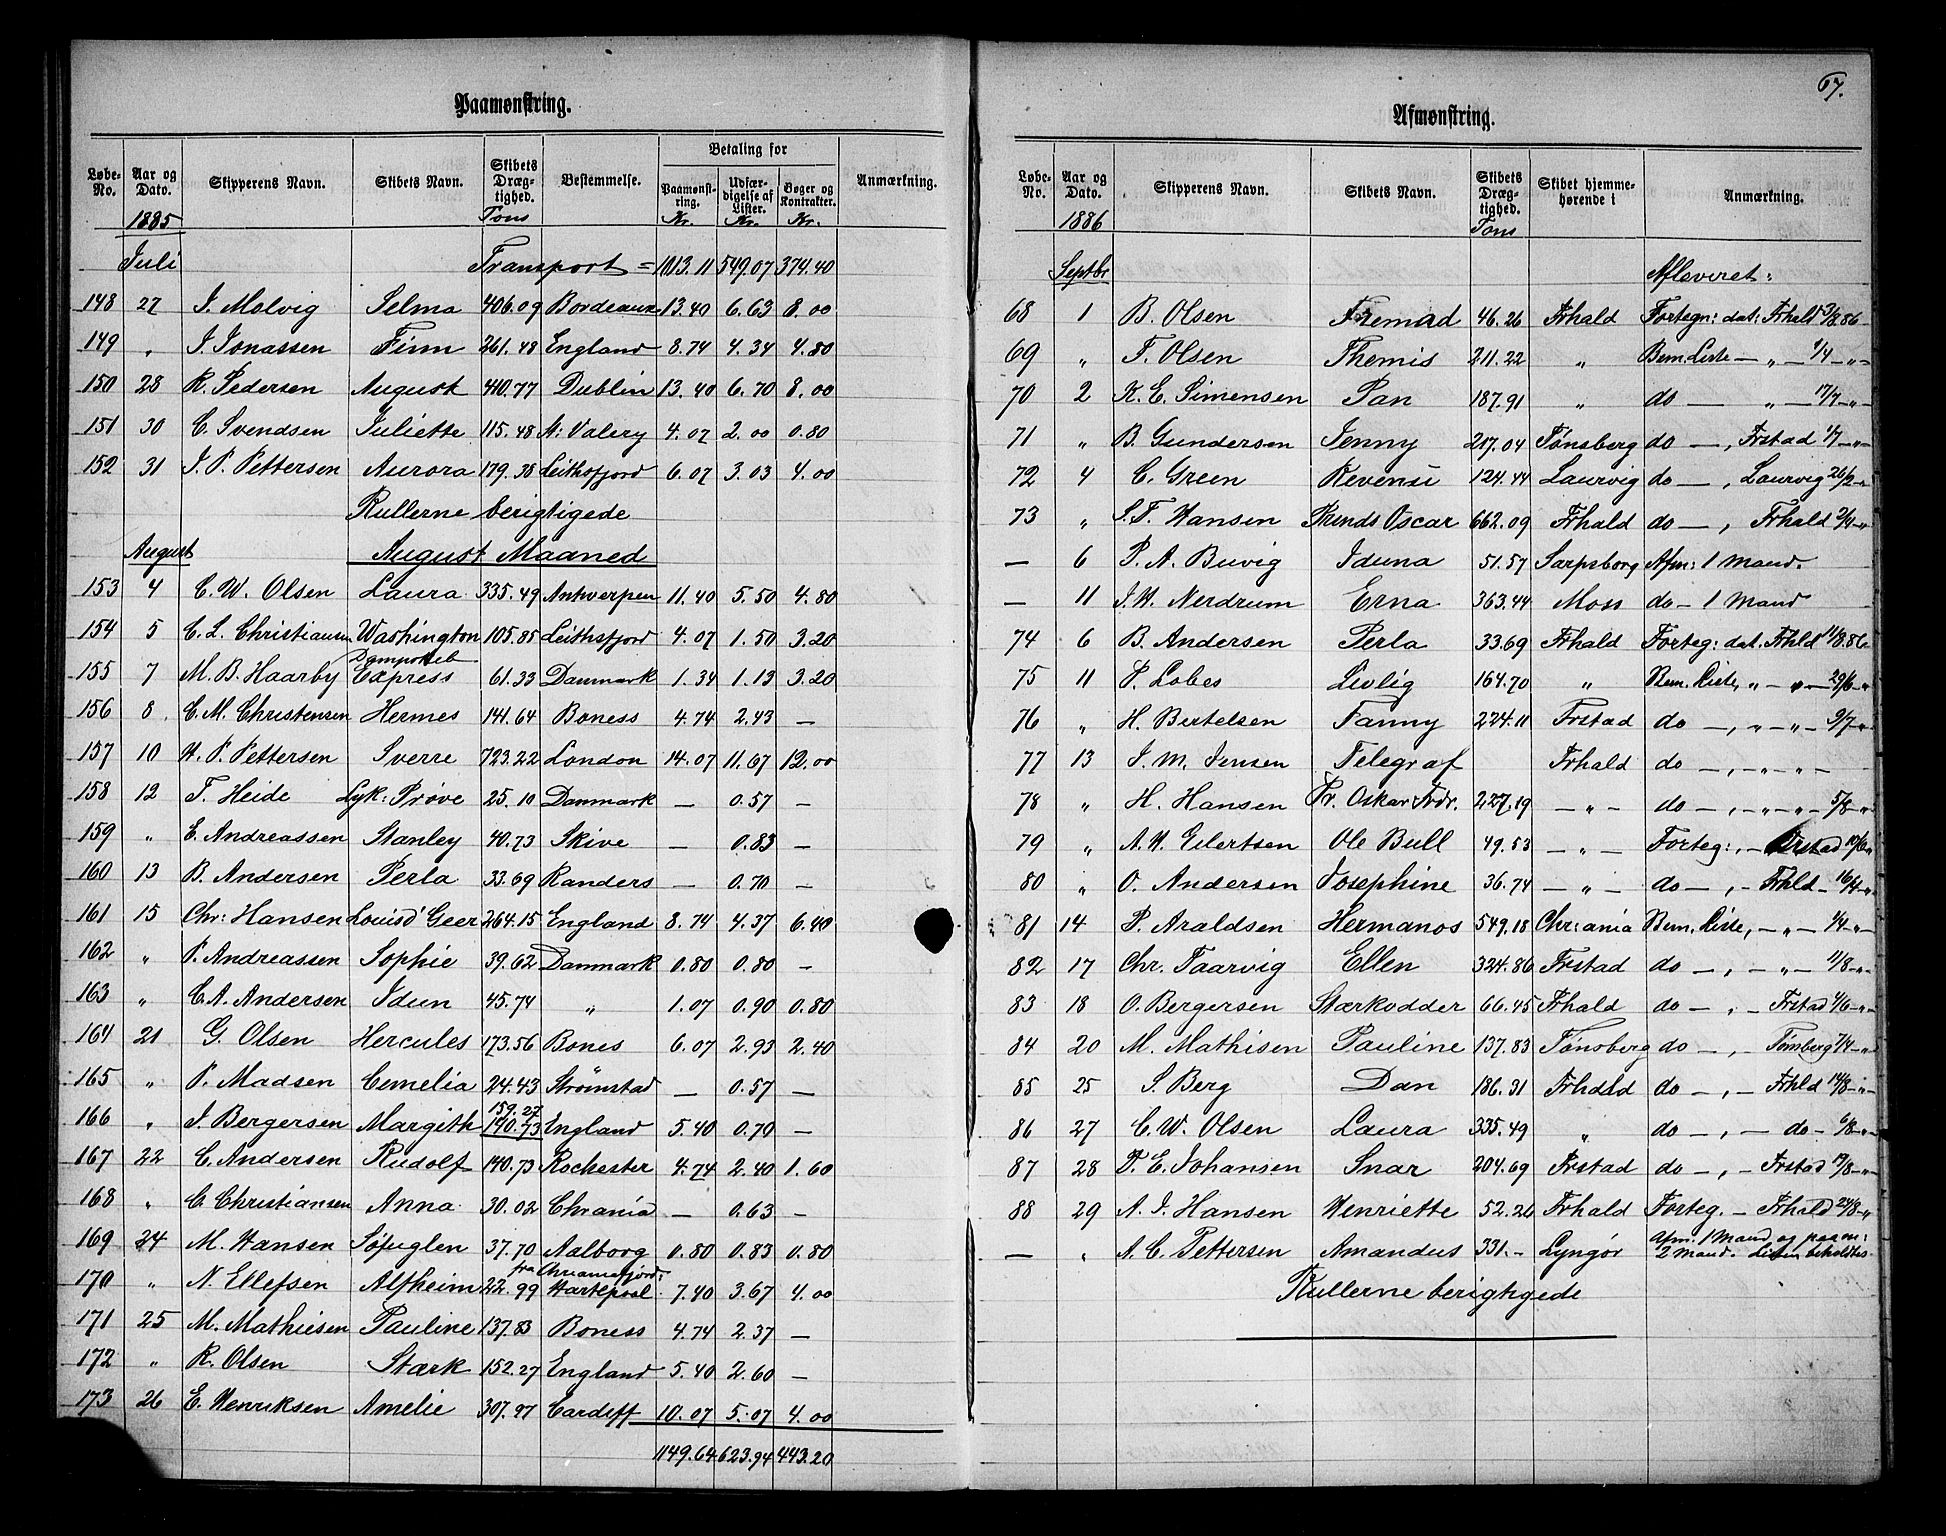 67.
Paamønstring.
Løbe-No. Aar og Dato. Skipperens Navn. Skibets Navn. Skibets Dræg-tighed. Bestemmelse. Betaling for Paamønst-ring. Udfær-digelse af Lister. Bøger og Kontrakter. Anmærkning.
1885 Tons Kr. Kr. Kr.
Juli Transport = 1013.11 549.07 374.40
148 27 J. Molvig Selma 406.09 Bordeaux 13.40 6.63 8.00
149 " J. Jonassen Finn 261.48 England 8.74 4.34 4.80
150 28 R. Pedersen August 410.77 Dublin 13.40 6.70 8.00
151 30 C. Svendsen Juliette 115.48 St: Valery 4.07 2.00 0.80
152 31 J. P. Pettersen Aurora 179.38 Leithsfjord 6.07 3.03 4.00
Rullerne berigtigede
August August Maaned
153 4 C. W. Olsen Laura 335.49 Antverpen 11.40 5.50 4.80
154 5 C. L. Christiansen Washington 105.85 Leithsfjord 4.07 1.50 3.20
155 7 M. B. Haarby Dampskib Express 61.33 Danmark 1.34 1.13 3.20
156 8 C. M. Christensen Hermes 141.64 Boness 4.74 2.43 —
157 10 H. P. Pettersen Sverre 723.22 London 14.07 11.67 12.00
158 12 T. Heide Lyk: Prøve 25.10 Danmark — 0.57 —
159 " E. Andreassen Stanley 40.73 Skive — 0.83 —
160 13 B. Andersen Perla 33.69 Randers — 0.70 —
161 15 Chr: Hansen Louis d' Geer 264.15 England 8.74 4.37 6.40
162 " P. Andreassen Sophie 39.62 Danmark 0.80 0.80 —
163 " C. A. Andersen Idun 45.74 " 1.07 0.90 0.80
164 21 G. Olsen Hercules 173.56 Bones 6.07 2.93 2.40
165 " P. Madsen Cemelia 24.43 Strømstad — 0.57 —
166 " J. Bergersen Margith 159.27 140.73 England 5.40 0.70 —
167 22 C. Andersen Rudolf 140.73 Rochester 4.74 2.40 1.60
168 " C. Christiansen Anna 30.02 Chrania — 0.63 —
169 24 M. Hansen Søfuglen 37.70 Aalborg 0.80 0.83 0.80
170 " N. Ellefsen Alfheim 22.99 fra Chraniafjord: Hartepool 7.40 3.67 4.00
171 25 M. Mathiesen Pauline 137.83 Boness 4.74 2.37 —
172 " R. Olsen Stærk 152.27 England 5.40 2.60 —
173 26 E. Henriksen Amelie 307.97 Cardiff 10.07 5.07 4.00
1149.64 623.94 443.20
Afmønstring.
Løbe-No. Aar og Dato. Skipperens Navn. Skibets Navn. Skibets Dræg-tighed. Skibet hjemme-hørende i Anmærkning.
1886 Tons
Septbr Afleveret:
68 1 B. Olsen Fremad 46.26 Frhald Fortegn: dat: Frhald 3/8.86
69 " F. Olsen Themis 211.22 " Bem. Liste — " — 1/4 — " —
70 2 K. E. Simensen Pan 187.91 " do — " — 17/7 — " —
71 " B. Gundersen Jenny 217.04 Tønsberg do — , Frstad 1/7 — " —
72 4 C. Green Revensu 124.44 Laurvig do — , Laurvig 26/2 — "
73 " S. F. Hansen Oscar 662.09 Frhald do — , Frhald 2/4 — "
— 6 P. A. Buvig Iduna 51.57 Sarpsborg Afm: 1 Mand.
— 11 J. H. Nerdrum Erna 363.44 Moss do — 1 Mand
74 6 B. Andersen Perla 33.69 Frhald Forteg: dat. Frhld 11/8.86
75 11 P. Lobes Livlig 164.70 " Bem. Liste, " — " — 29/6 — "
76 " H. Bertelsen Fanny 224.11 Frstad do — , " — " — 9/7 — "
77 13 J. M. Jensen Telegraf Frhald do — , — " — " —
78 " H. Hansen Pr. Oskar Frdr. 227.19 — " — do — , — " — " — 5/8 — "
79 " A. H. Eilertsen Ole Bull 49.53 — " — Forteg: , — Frstad 19/6 "
80 " O. Andersen Josephine 36.74 — " — do — , — Frhld — 16/4 — "
81 14 P. Araldsen Hermanos 549.18 Chr:ania Bem. Liste, — " — 1/4 — " —
82 17 Chr. Taarvig Ellen 324.86 Frstad do — , — " — 11/8 — "
83 18 O. Bergersen Stærkodder 66.45 Frhald do — , — Frstad 4/6 — "
84 20 M. Mathisen Pauline 137.83 Tønsberg do — , — Tønsberg 7/4 — "
85 25 S. Berg Dan 186.31 Frhald do — , — Frhld 14/8 — " —
86 27 C. W. Olsen Laura 335.49 " do — , — do — 6/8 — " —
87 28 P. E. Johansen Snar 204.69 Frstad do — , — Frstad 17/8 — " —
88 29 A. J. Hansen Henriette 52.26 Frhald Forteg. — Frhald 24/8 — "
— " A. C. Pettersen Amandus 331.— Lyngør Afm: 1 Mand og paam: 2 Mand. Listen beholdtes
Rullerne berigtigede